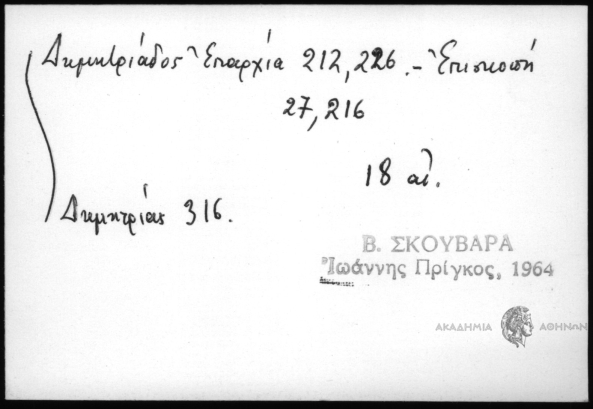 Δημητριάδος Ἐπαρχία 212, 226. – Ἐπισκοπή
27, 216
18 αἰ.
Δημητριάς 316.
Β. ΣΚΟΥΒΑΡΑ
Ἰωάννης Πρίγκος, 1964
ΑΚΑΔΗΜΙΑ ΑΘΗΝΩΝ